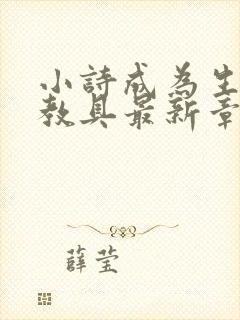 小詩成為生
教具最新章
薛莹